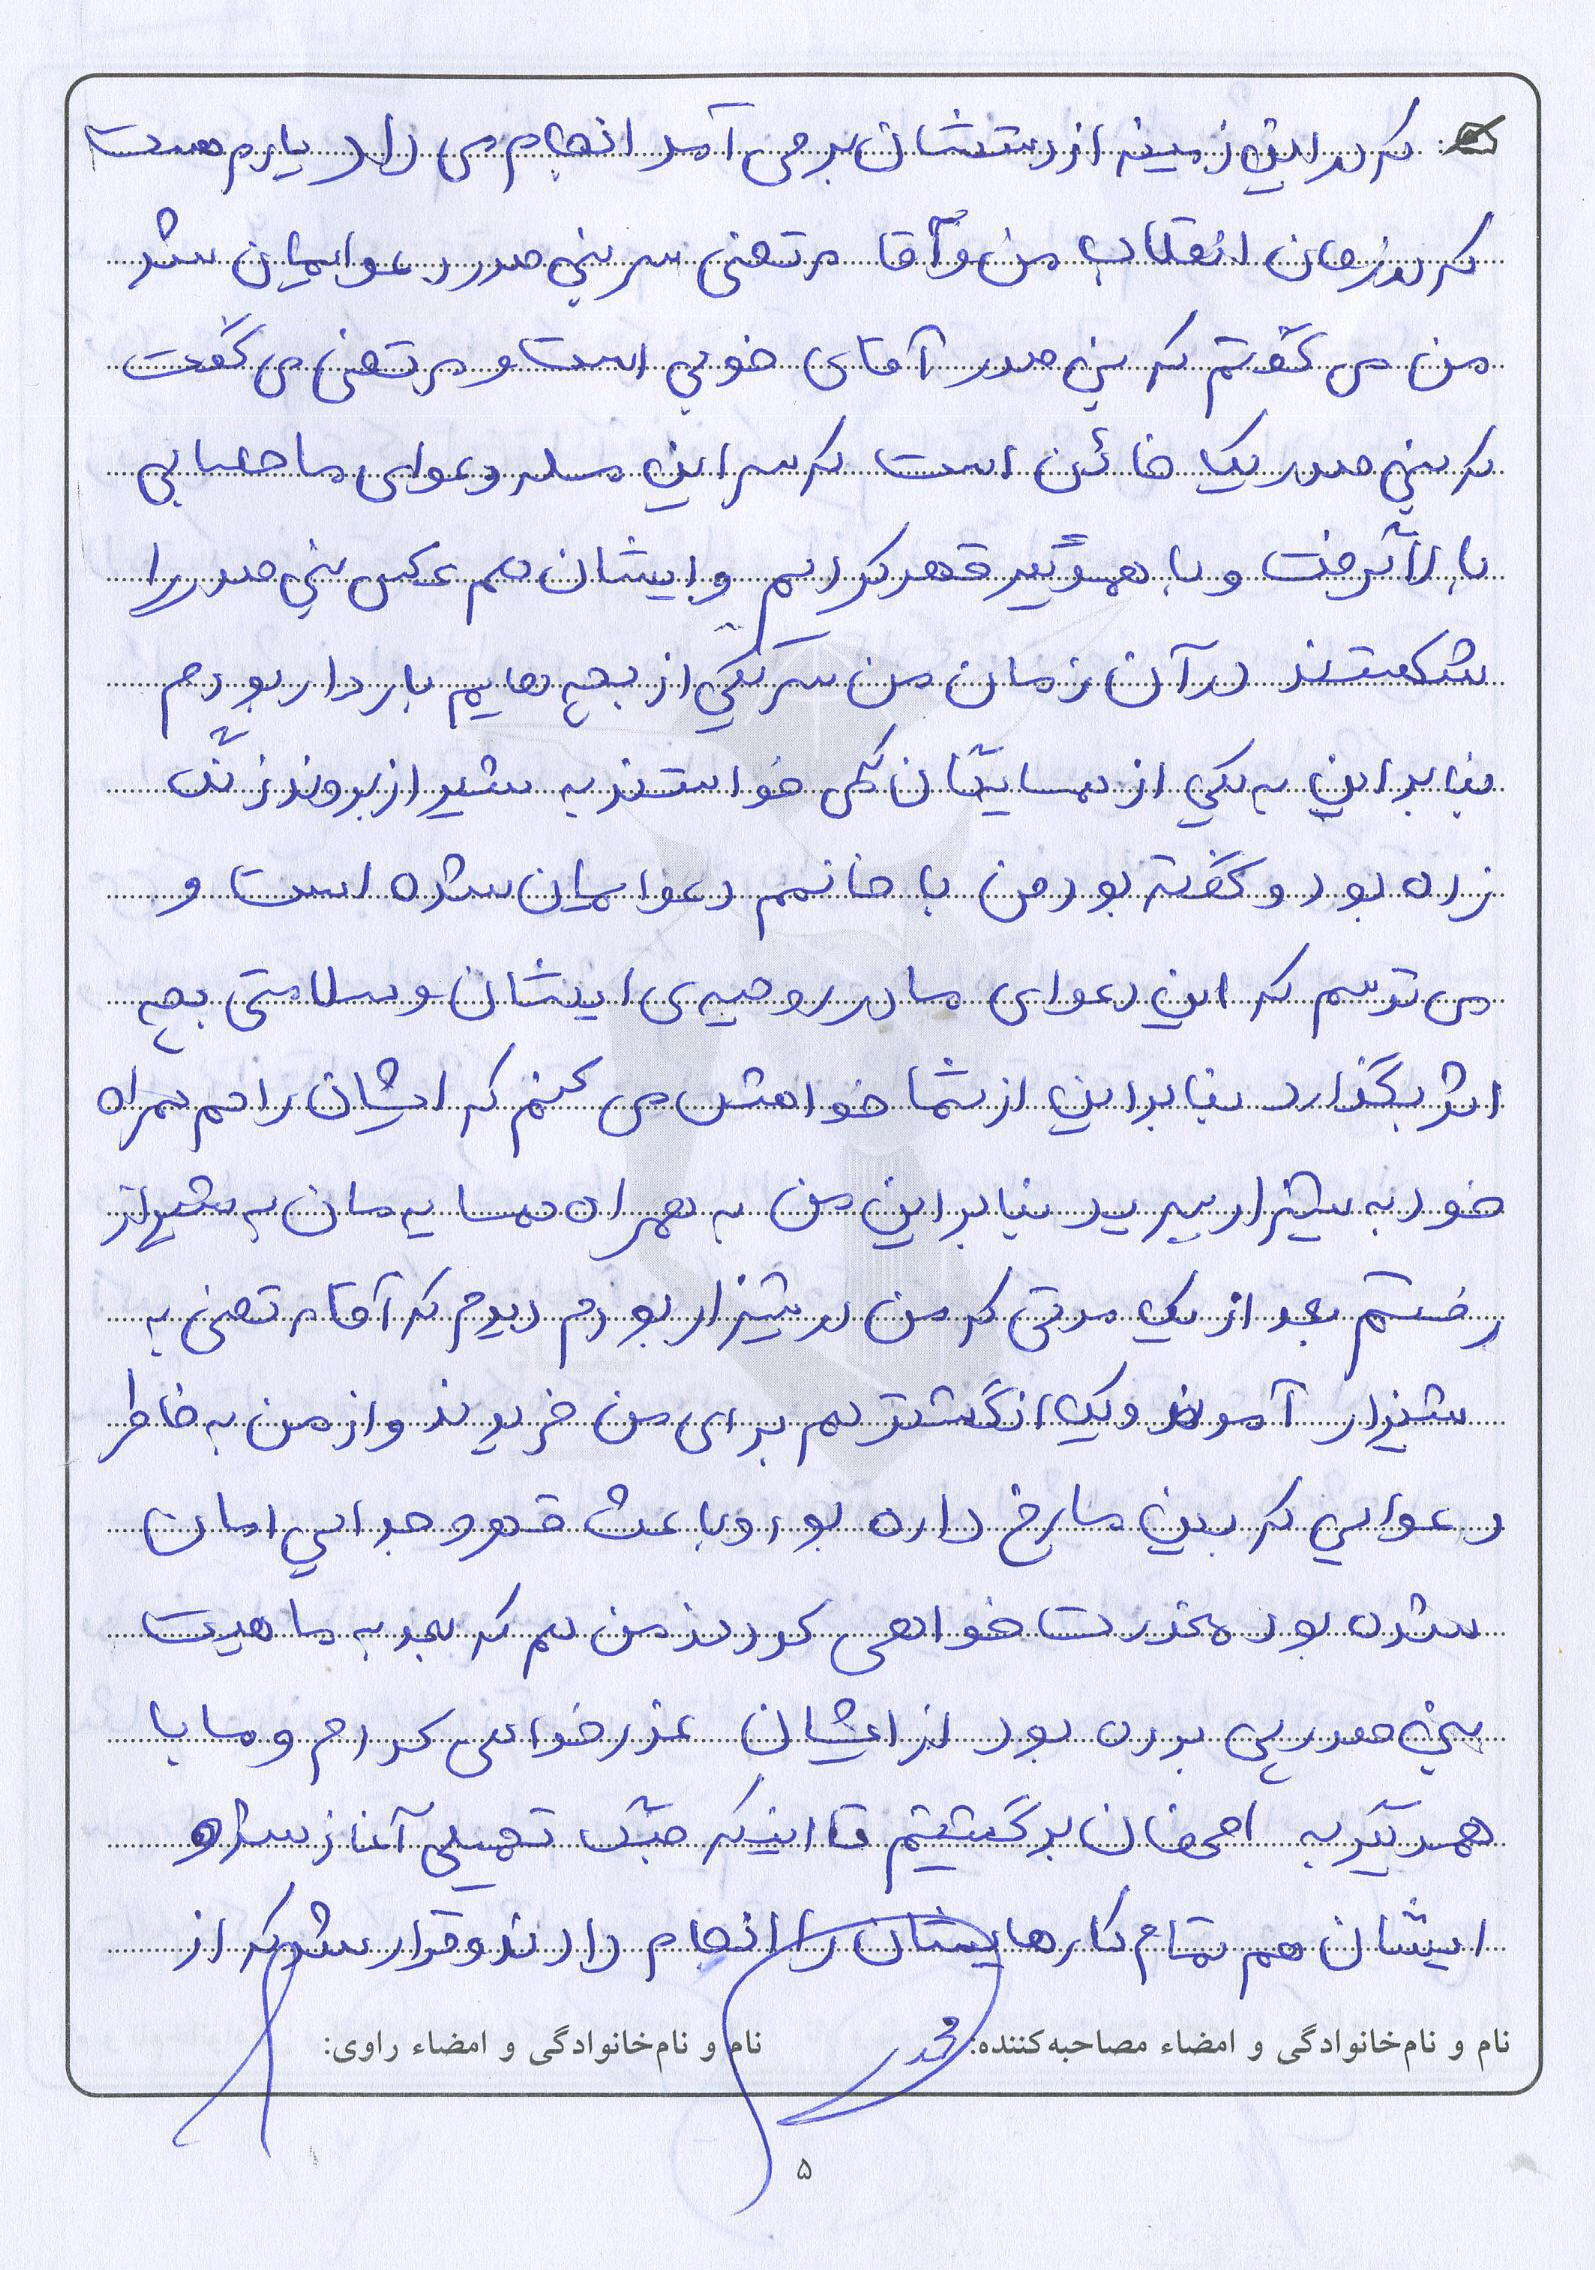 که در این زمینه از دستشان بر می آمد انجام می داد یادم هست
که در زمان انقلاب من و آقا مرتضی سر بنی صدر دعوایمان شد
من می گفتم که بنی صدر آقای خوبی است و مرتضی می گفت
که بنی صدر یک خائن است که سر این مسله دعوای ما حسابی
بالا گرفت و با همدیگر قهر کردیم و ایشان هم عکس بنی صدر را
شکستند در آن زمان من سر یکی از بچه هایم باردار بودم
بنابراین به یکی از همسایگان که می خواستند به شیراز بروند زنگ
زده بود و گفته بود من با خانمم دعوایمان شده است و
می ترسم که این دعوای ما در روحیه ی ایشان و سلامتی بچه
اثر بگذارد بنابراین از شما خواهش می کنم که ایشان را هم همراه
خود به شیراز ببرید بنابراین من به همراه همسایه مان به شیراز
رفتم بعد از یک مدتی که من در شیراز بودم دیدم که آقا مرتضی به
شیراز آمدند و یک انگشتر هم برای من خریدند و از من به خاطر
دعوایی که بین ما رخ داده بود و باعث قهر و جدایی امان
شده بود معذرت خواهی کردند من هم که بعد به ماهیت
بنی صدر پی برده بود از ایشان عذرخواهی کردم و ما با
همدیگر به اصفهان برگشتیم تا اینکه جنگ تحمیلی آغاز شد و
ایشان هم تمام کارهایشان را انجام دادند و قرار شد که از
نام و نام‌خانوادگی و امضاء مصاحبه‌کننده: نام و نام‌خانوادگی و امضاء راوی:
۵